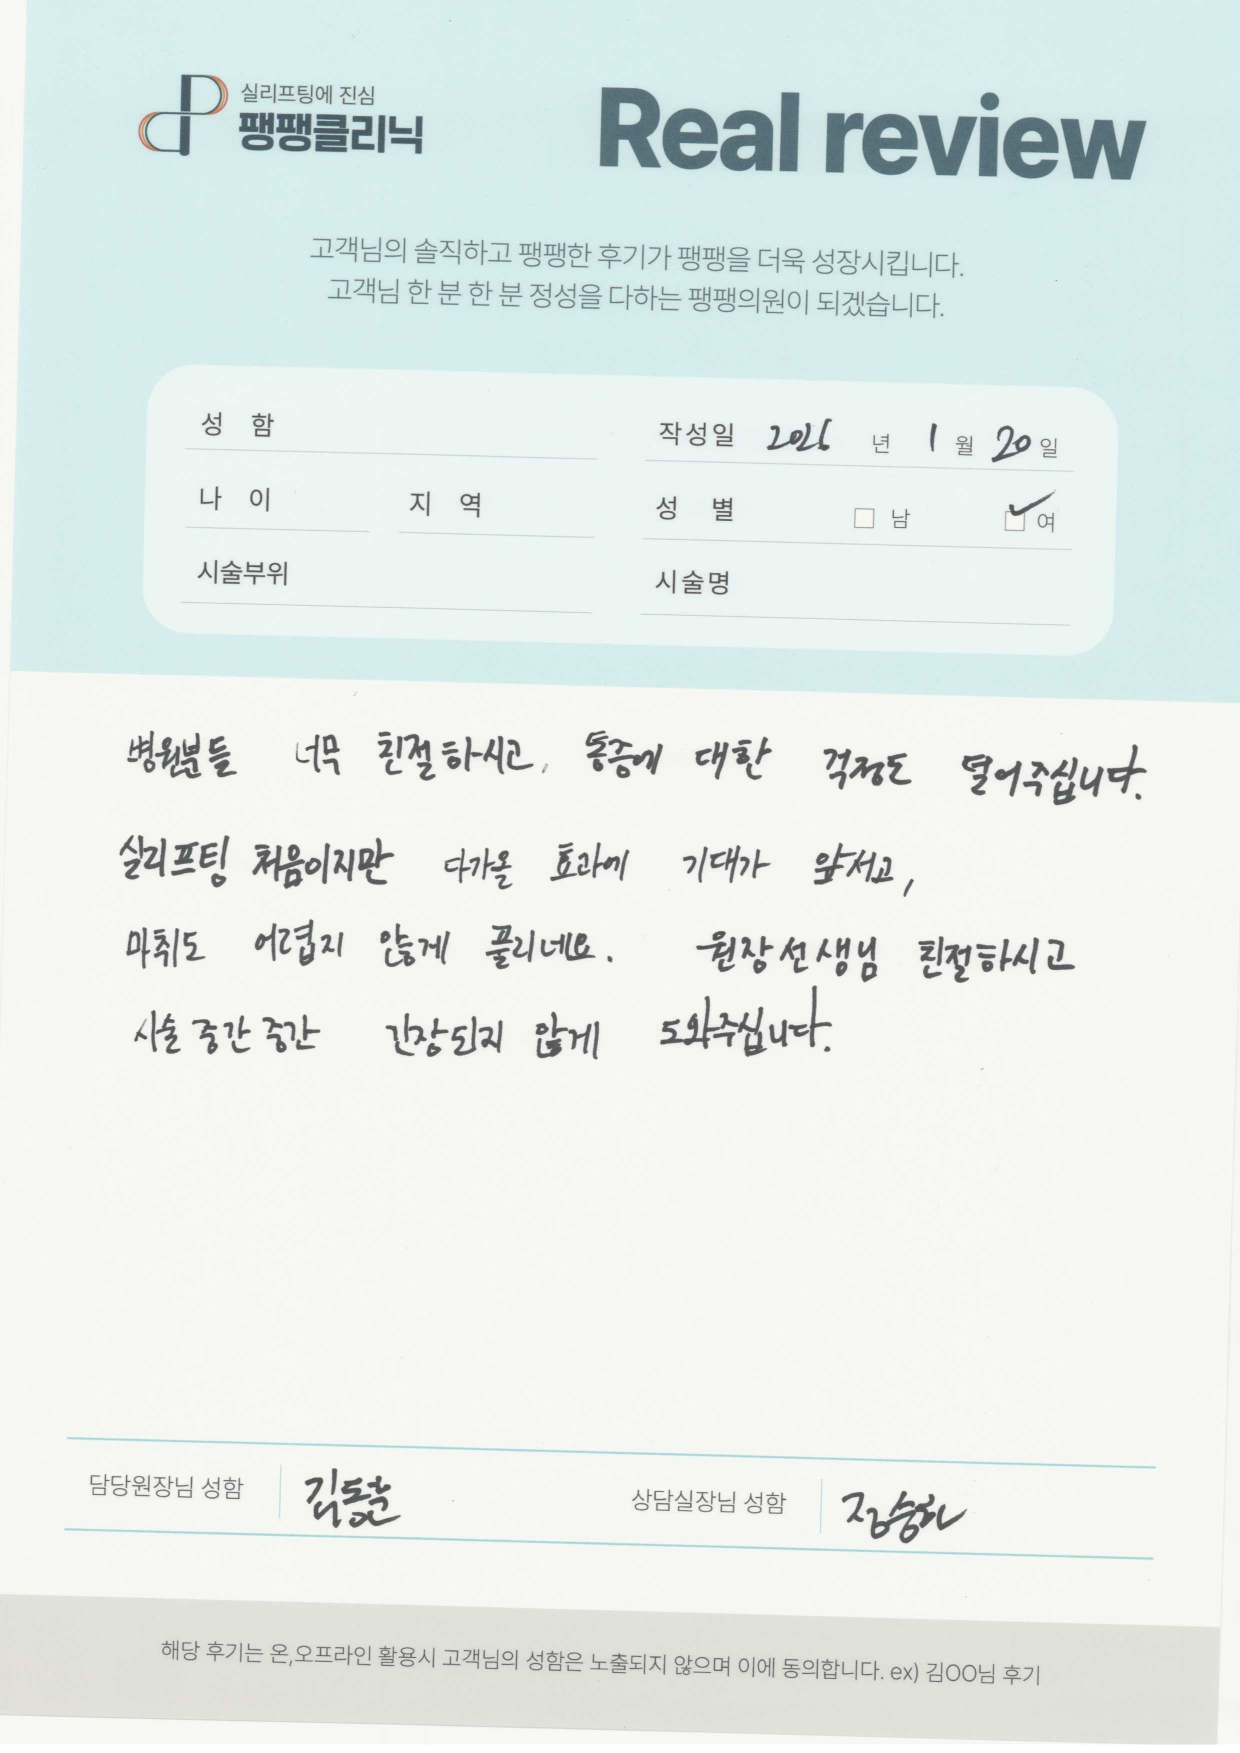 실리프팅에 진심
팽팽클리닉
Real review
고객님의 솔직하고 팽팽한 후기가 팽팽을 더욱 성장시킵니다.
고객님 한 분 한 분 정성을 다하는 팽팽의원이 되겠습니다.
성 함
작성일 2026 년 1 월 20 일
나 이 지 역
성 별 남 여
시술부위
시술명
병원분들 너무 친절하시고, 통증에 대한 걱정도 덜어주십니다.
실리프팅 처음이지만 다가올 효과에 기대가 앞서고,
마취도 어렵지 않게 풀리네요. 원장선생님 친절하시고
시술 중간중간 긴장되지 않게 도와주십니다.
담당원장님 성함
상담실장님 성함
해당 후기는 온,오프라인 활용시 고객님의 성함은 노출되지 않으며 이에 동의합니다. ex) 김OO님 후기